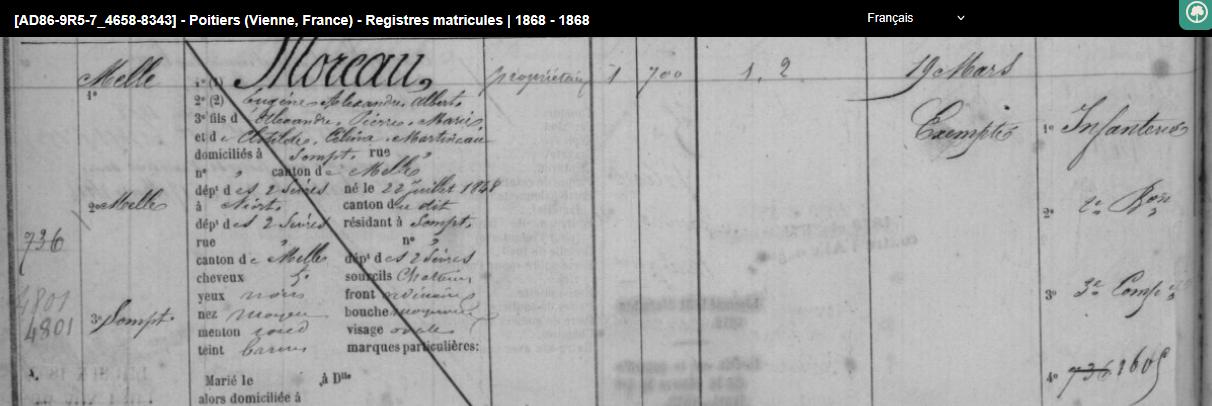 [AD86-9R5-7_4658-8343] - Poitiers (Vienne, France) - Registres matricules | 1868 - 1868
Français
Melle
1°
1° (1) Moreau,
2° (2) Eugène, Alexandre, Albert,
3° fils d'Alexandre, Pierre, Marie
et de Clotilde, Célina, Martineau
domiciliés à Sompt, rue "
n° " canton de Melle
dépt des 2 Sèvres né le 22 juillet 1848
à Niort, canton du dit
dépt des 2 Sèvres résidant à Sompt,
rue " n° "
canton de Melle dépt des 2 Sèvres
cheveux sourcils Châtains
yeux noirs front ordinaire
nez moyen bouche moyenne
menton rond visage ovale
teint marques particulières:
Marié le à Dlle
alors domiciliée à
2° Melle
736
4801
4801
3° Sompt
propriétaire
1
700
1. 2
19 Mars
Exempté
1° Infanterie
2° 2e Bon
3° 3e Comp
4° 736 1605